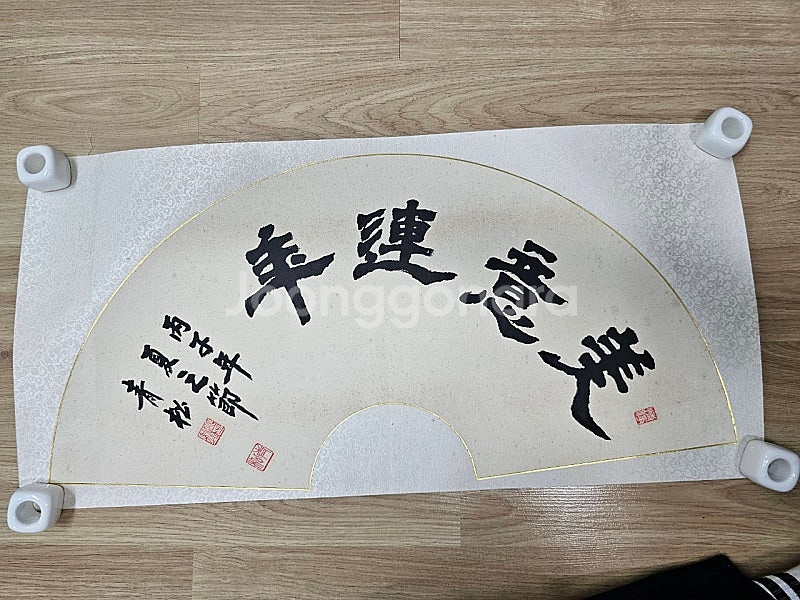 美意連年
丙子年
夏之節
青松
Joonggonara